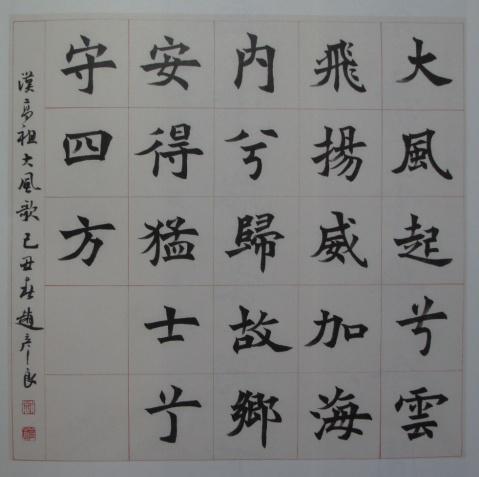 大風起兮雲
飛揚威加海
内兮歸故鄉
安得猛士兮
守四方
漢高祖大風歌己丑春趙彦良